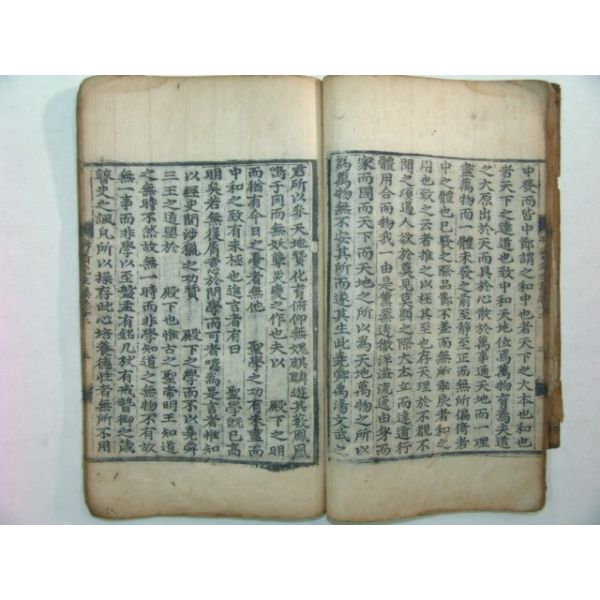 中發而皆中節謂之和中也者天下之大本也和也
者天下之達道也致中和天地位焉萬物育焉夫道
之大原出於天而具於心散於萬事通天地而一理
盡萬物而一體未發之前至靜至正而無所偏倚者
中之體也已發之際品節不差而無所乖戾者和之
用也致之云者推之以極其至也存天理於不覩不
聞之頃遏人欲於莫見莫顯之際大本立而達道行
體用合而物我一由是薰蒸透徹洋溢流通由身而
家而國而天下而天地之所以爲天地萬物之所以
爲萬物無不安其所而遂其生此堯舜禹湯文武之
君所以參天地贊化育俯仰無愧麒麟遊其藪鳳凰
鳴于岡而無妖孽災戾之作也夫以 殿下之明
而猶有今日之憂者無他 聖學之功有未盡而
中和之致有未極也進言者有曰 聖學旣已高
明矣若無復屑意於問學而可者
以經史間涉獵之功贊 殿下之學而不以堯舜
三王之道望於 殿下也惟古之聖帝明王知道
之無時不然故無一時而非學知道之無物不有故
無一事而非學以至盤盂有銘几杖有戒瞽御之箴
瞽史之諷凡所以操存此心培養德性者無所不用